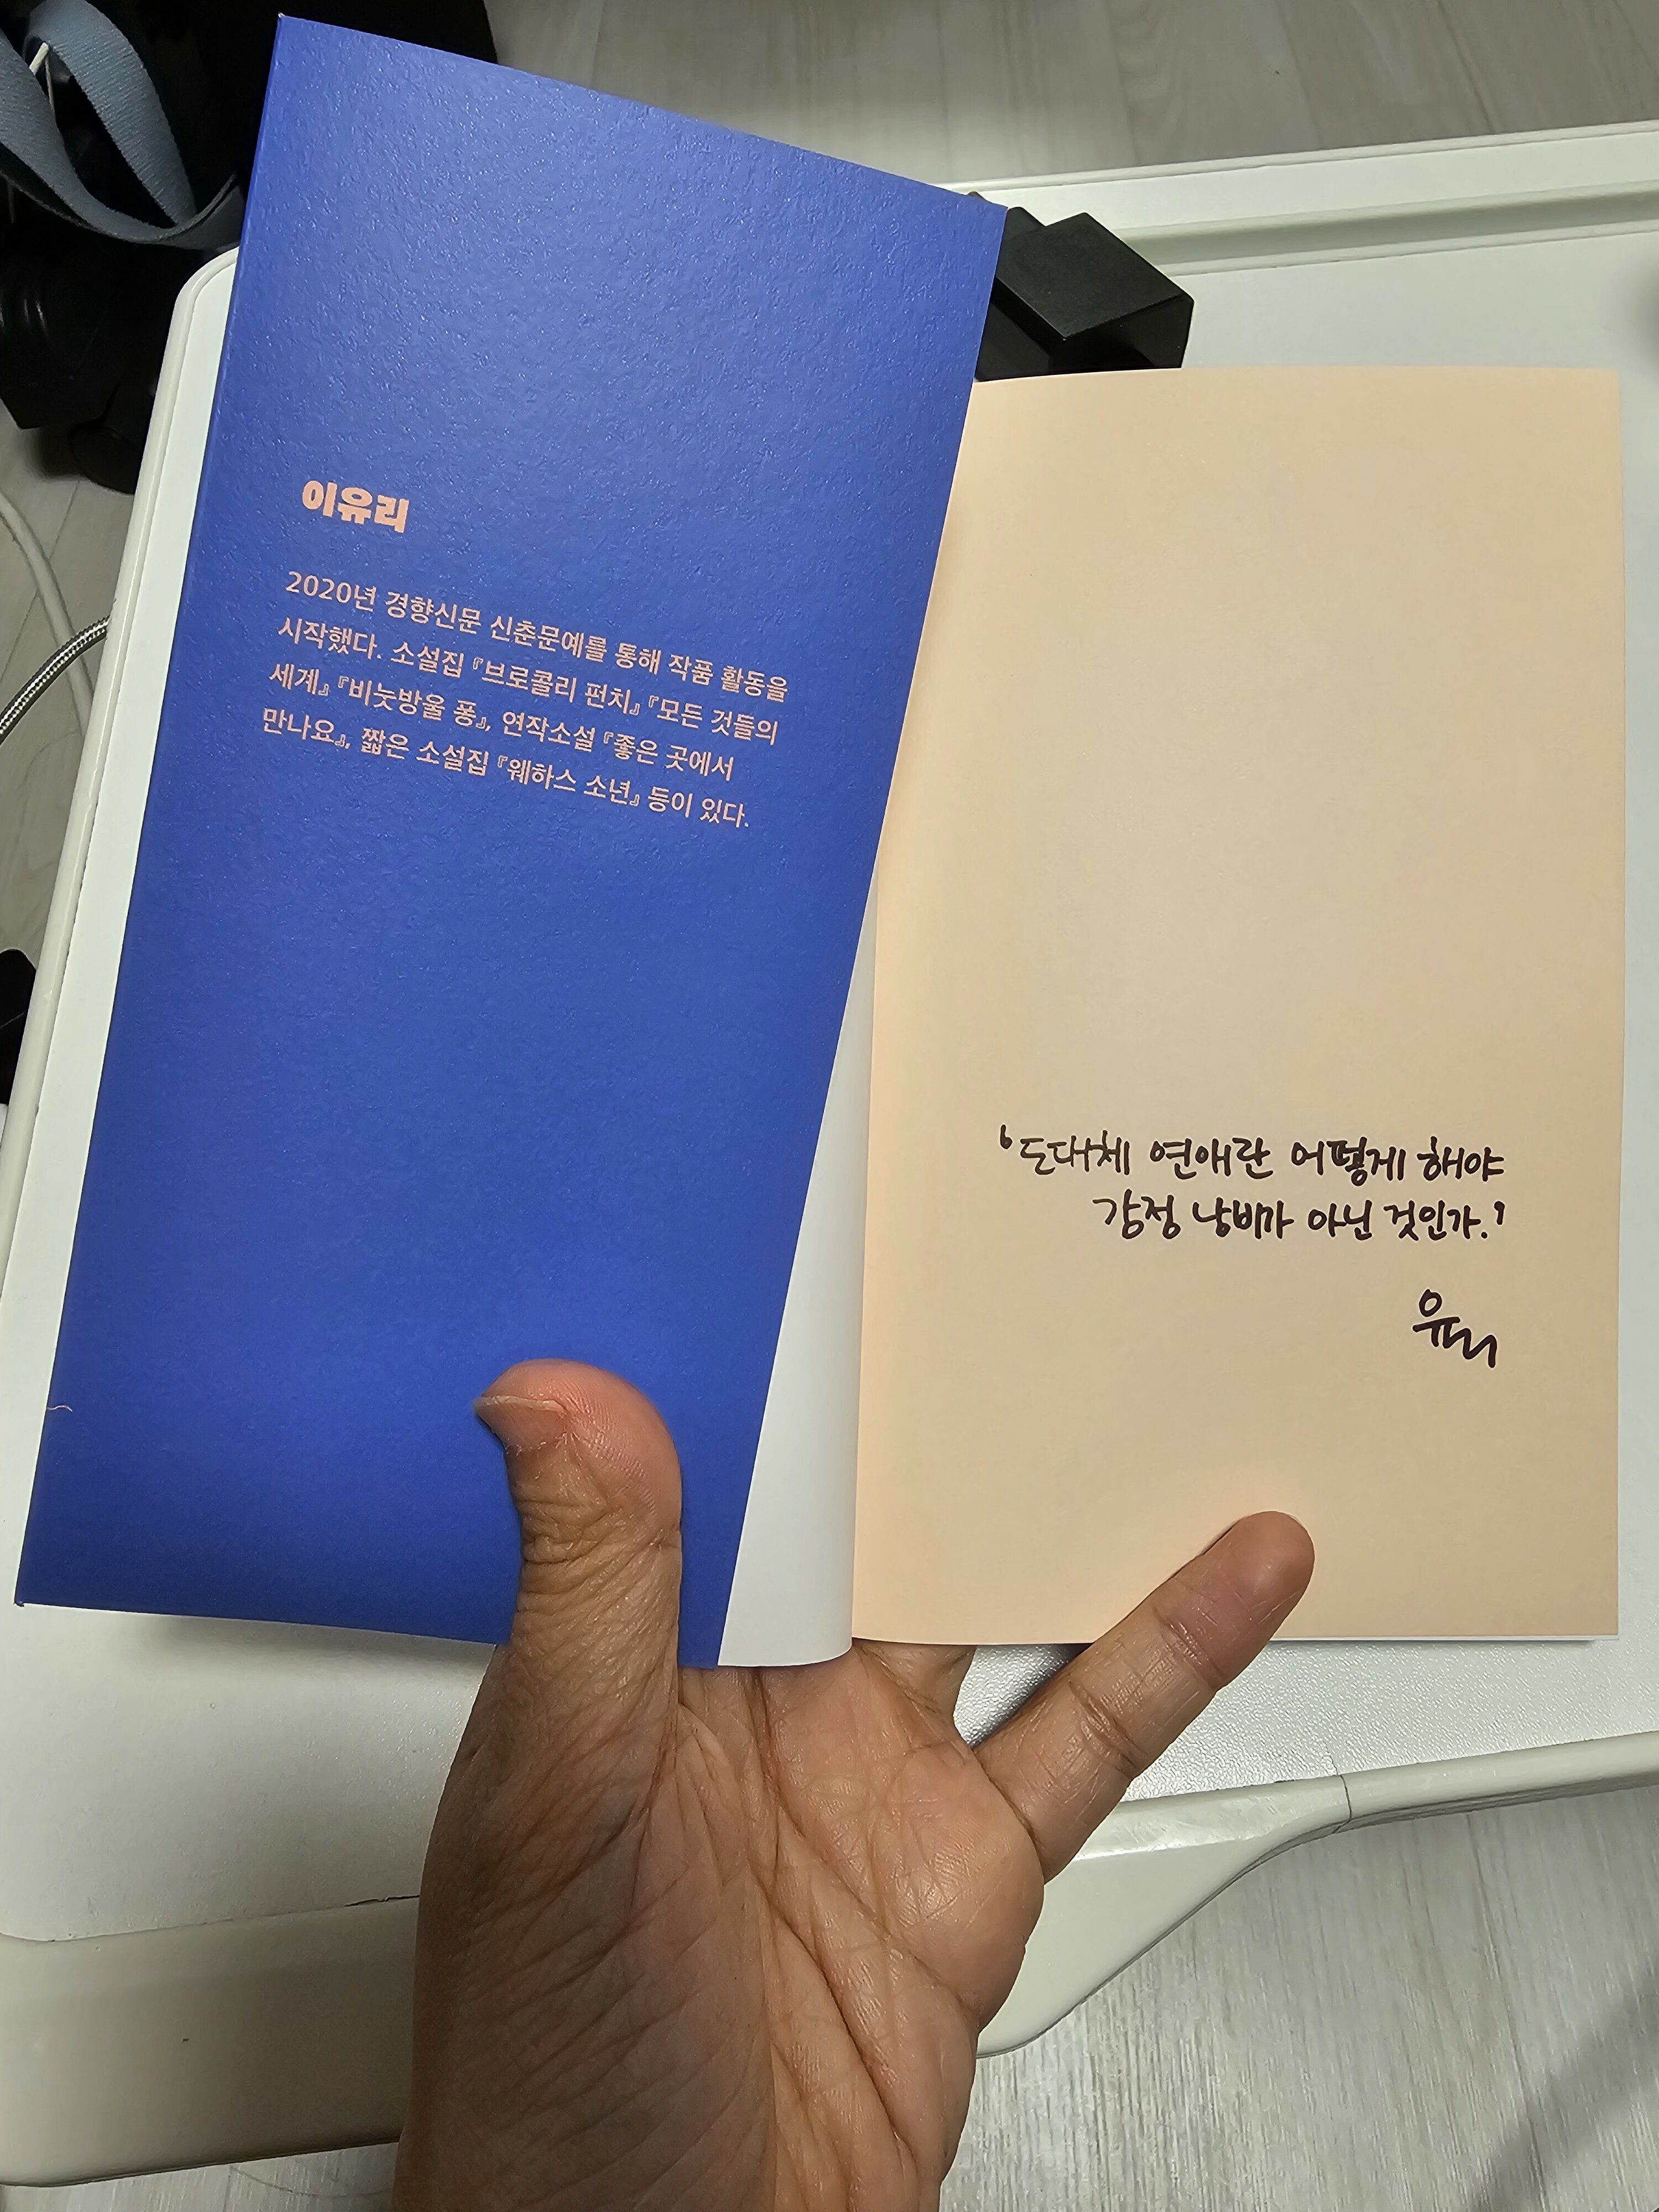 이유리
2020년 경향신문 신춘문예를 통해 작품 활동을
시작했다. 소설집 『브로콜리 펀치』 『모든 것들의
세계』 『비눗방울 퐁』, 연작소설 『좋은 곳에서
만나요』, 짧은 소설집 『웨하스 소년』 등이 있다.
‘도대체 연애란 어떻게 해야
감정 낭비가 아닌 것인가.’
유리